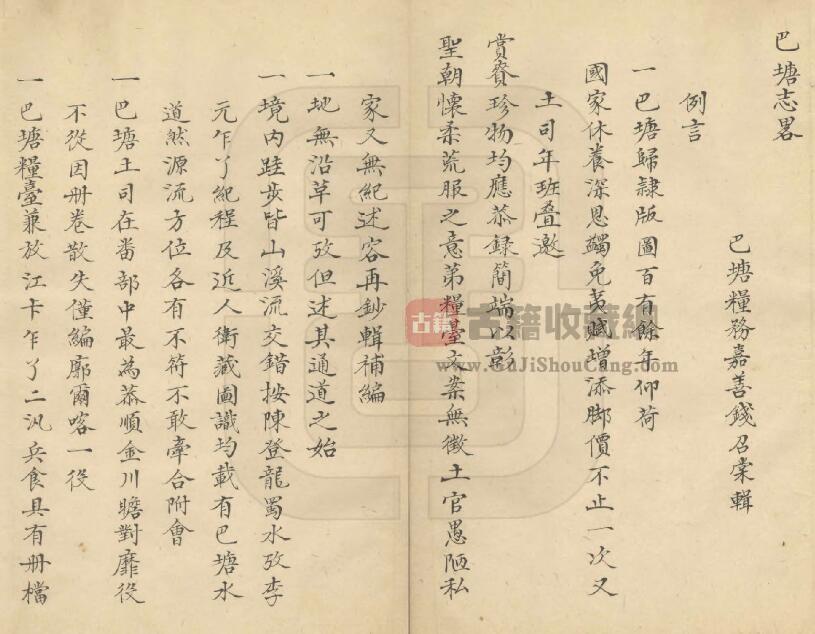 巴塘志畧
巴塘糧務嘉善錢召棠輯
例言
一巴塘歸隷版圖百有餘年仰荷
國家休養深恩蠲免夷賦增添脚價不止一次又
土司年班叠邀
賞賚珍物均應恭録簡端以彰
聖朝懷柔荒服之意苐糧臺文案無徵土官愚陋私
家又無紀述容再鈔輯補編
一地無沿革可攷但述其通道之始
一境内跬步皆山溪流交錯按陳登龍蜀水攷李
元乍丫紀程及近人衛藏圖識均載有巴塘水
道然源流方位各有不符不敢牽合附會
一巴塘土司在番部中最為恭順金川瞻對靡役
不從因册卷散失僅編廓爾喀一役
一巴塘糧臺兼放江卡乍丫二汛兵食具有册檔
古籍
古籍收藏網
www.GuJiShouCang.com